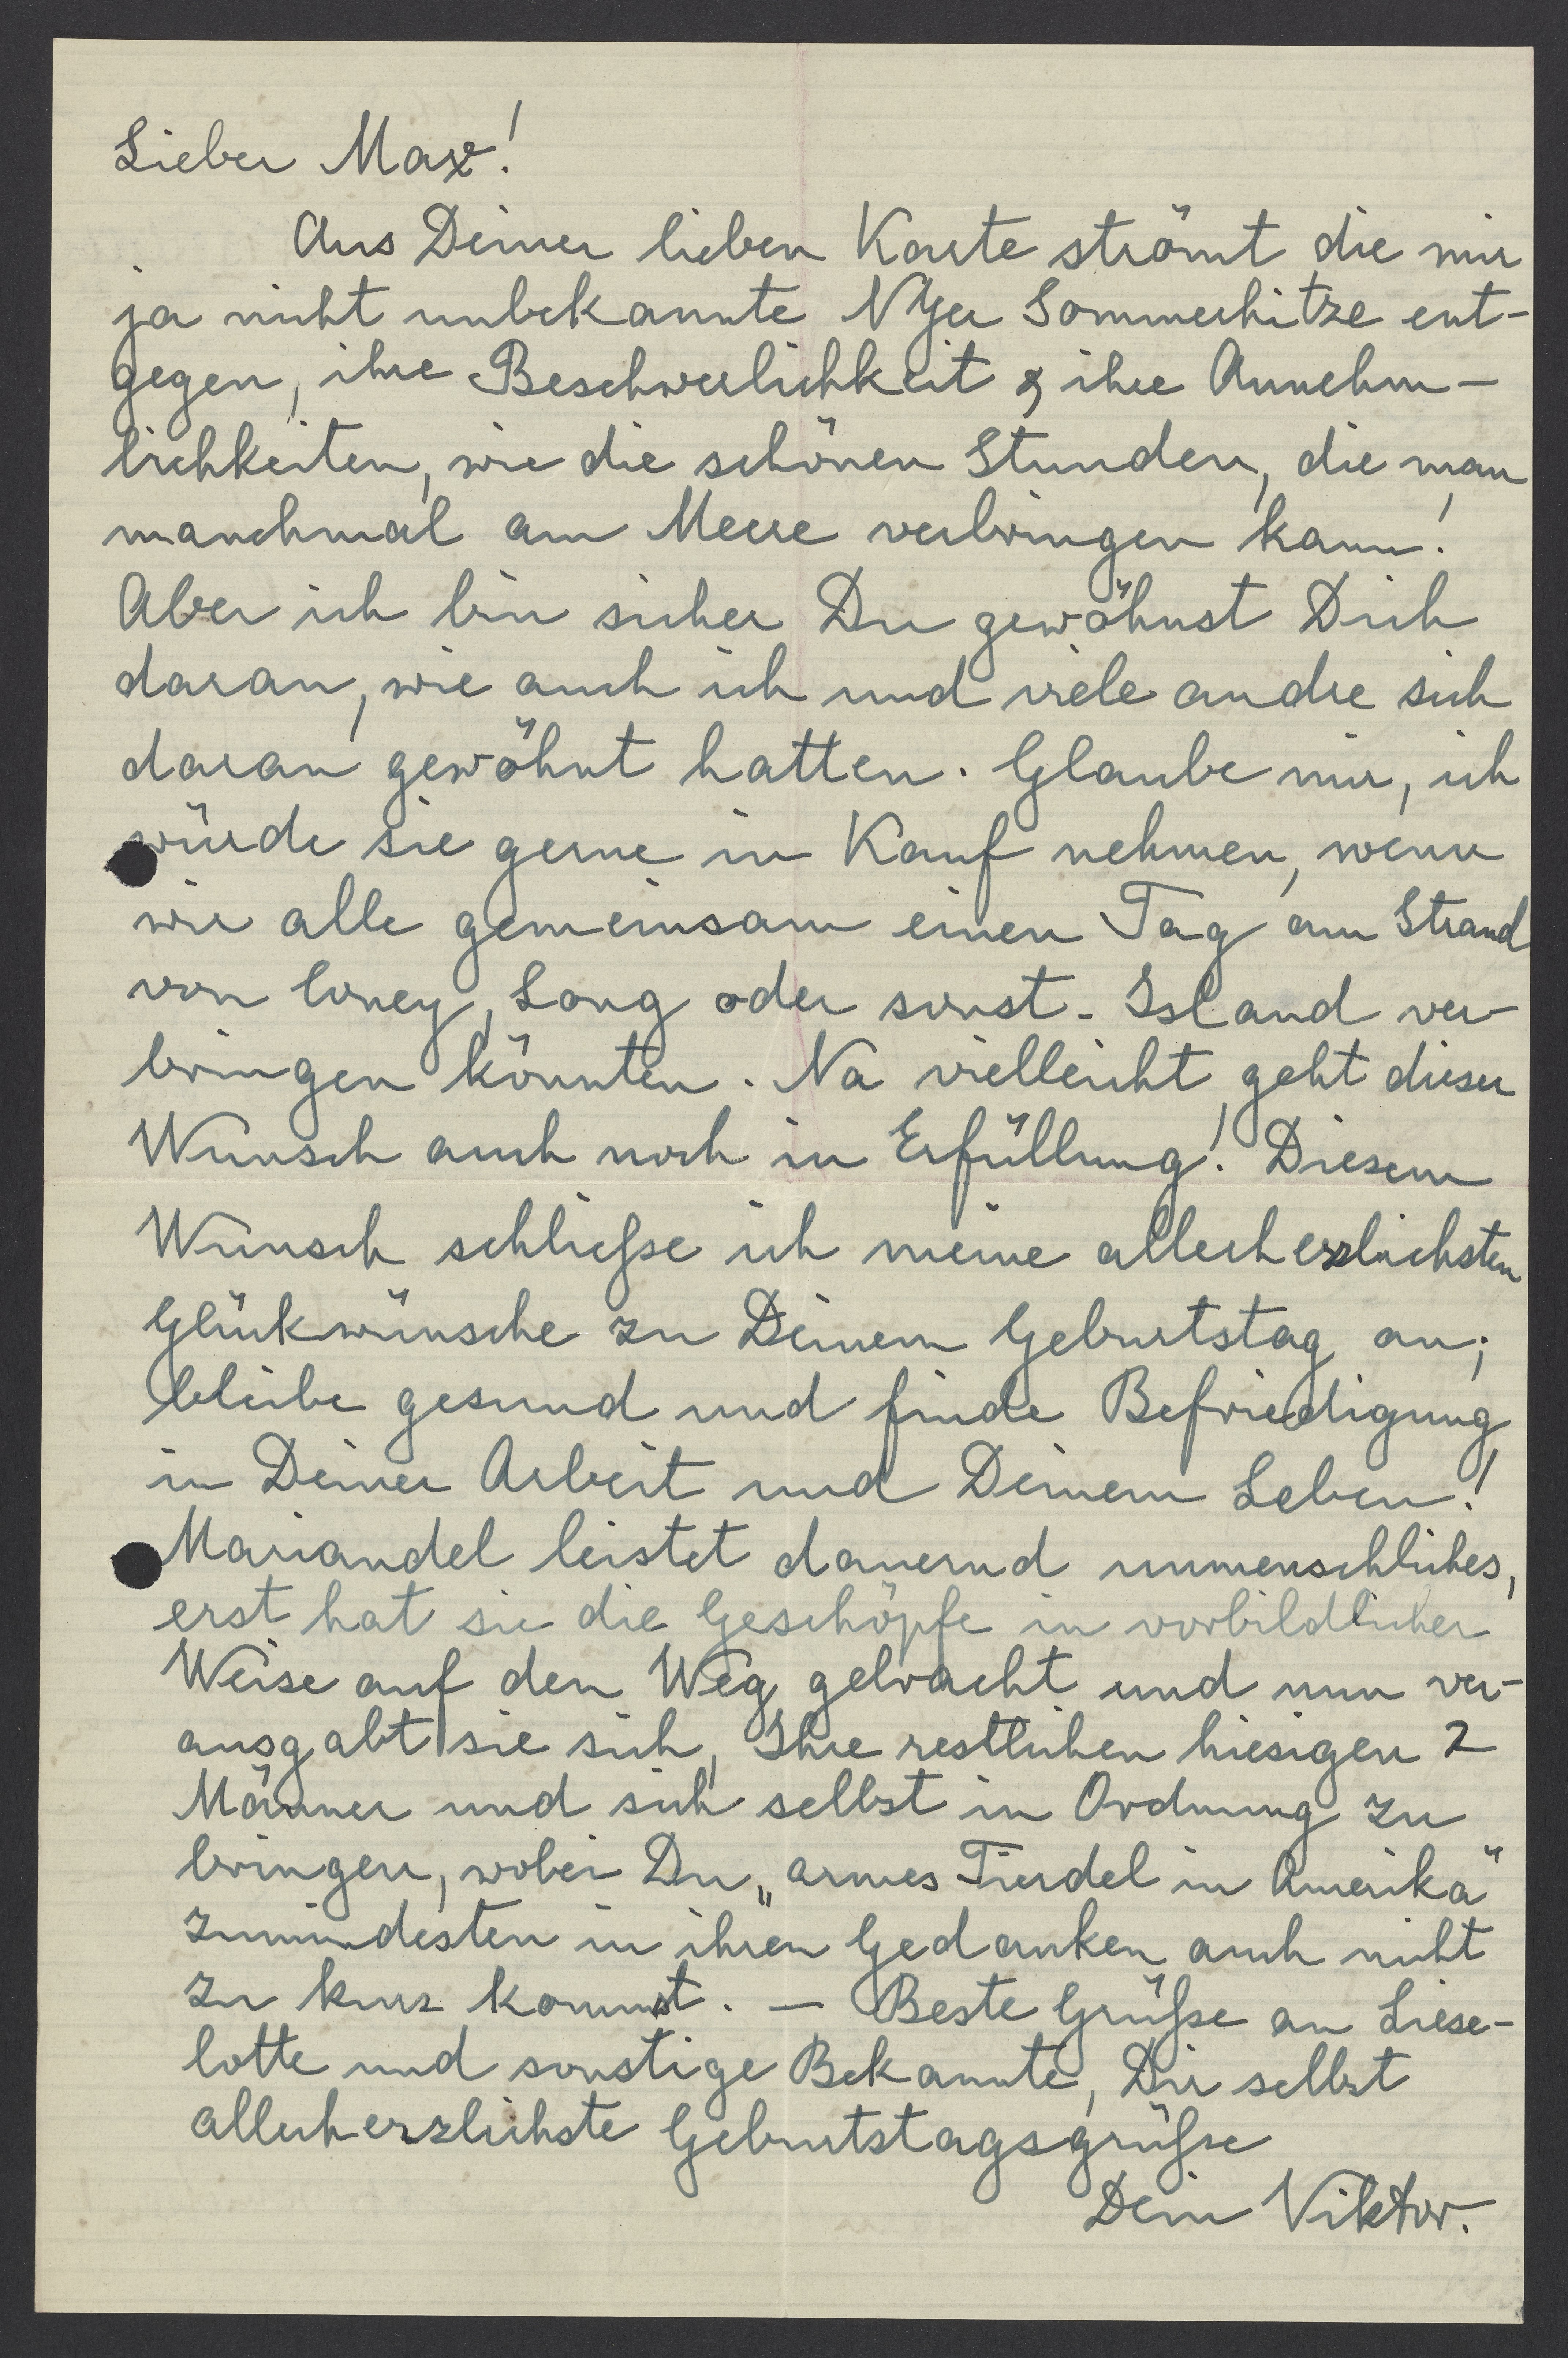 Lieber Max!
Aus Deiner lieben Karte strömt die mir
ja nicht unbekannte NYer Sommerhitze ent-
gegen, ihre Beschwerlichkeit & ihre Annehm-
lichkeiten, wie die schönen Stunden, die man
manchmal am Meere verbringen kann!
Aber ich bin sicher Du gewöhnst Dich
daran, wie auch ich und viele andre sich
daran gewöhnt hatten. Glaube mir, ich
würde sie gerne in Kauf nehmen, wenn
wir alle gemeinsam einen Tag am Strand
von Coney, Long oder sonst. Island ver-
bringen könnten. Na vielleicht geht dieser
Wunsch auch noch in Erfüllung! Diesem
Wunsch schließe ich meine allerherzlichsten
Glückwünsche zu Deinem Geburtstag an;
bleibe gesund und finde Befriedigung
in Deiner Arbeit und Deinem Leben!
Mariandel leistet dauernd unmenschliches,
erst hat sie die Geschöpfe in vorbildlicher
Weise auf den Weg gebracht und nun ver-
ausgabt sie sich, Ihre restlichen hiesigen 2
Männer und sich selbst in Ordnung zu
bringen, wobei Du „armes Tierdel in Amerika"
zumindesten in ihren Gedanken auch nicht
zu kurz kommst. — Beste Grüße an Liese-
lotte und sonstige Bekannte, Dir selbst
allerherzlichste Geburtstagsgrüße
Dein Viktor.